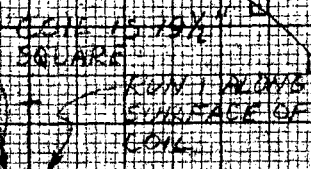 COIL IS 19½"
SQUARE
RUN 1 ALONG
SURFACE OF
COIL